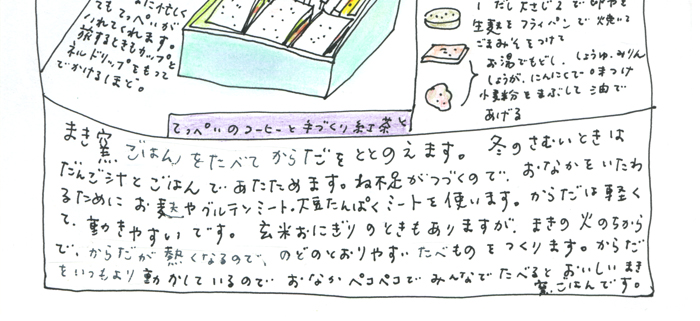 に忙しく
てもてっぺいが
いれてくれます。
旅するときもカップと
ネルドリップをもって
でかけるほど。
1 だし大さじ2で
生麩をフライパンで焼いて
ごまみそをつけて
お湯でもどし、しょうゆ、みりん
しょうが、にんにくで味つけ
小麦粉をまぶして油で
あげる
てっぺいのコーヒーと手づくり紅茶と
まき窯ごはんをたべてからだをととのえます。冬のさむいときは
だんご汁とごはんであたためます。ね不足がつづくので、おなかをいたわ
るためにお麩やグルテンミート、大豆たんぱくミートを使います。からだは軽く
て、動きやすいです。玄米おにぎりのときもありますが、まきの火のちから
で、からだが熱くなるので、のどのとおりやすいたべものをつくります。からだ
をいつもより動かしているのでおなかペコペコでみんなでたべるとおいしいまき
窯ごはんです。